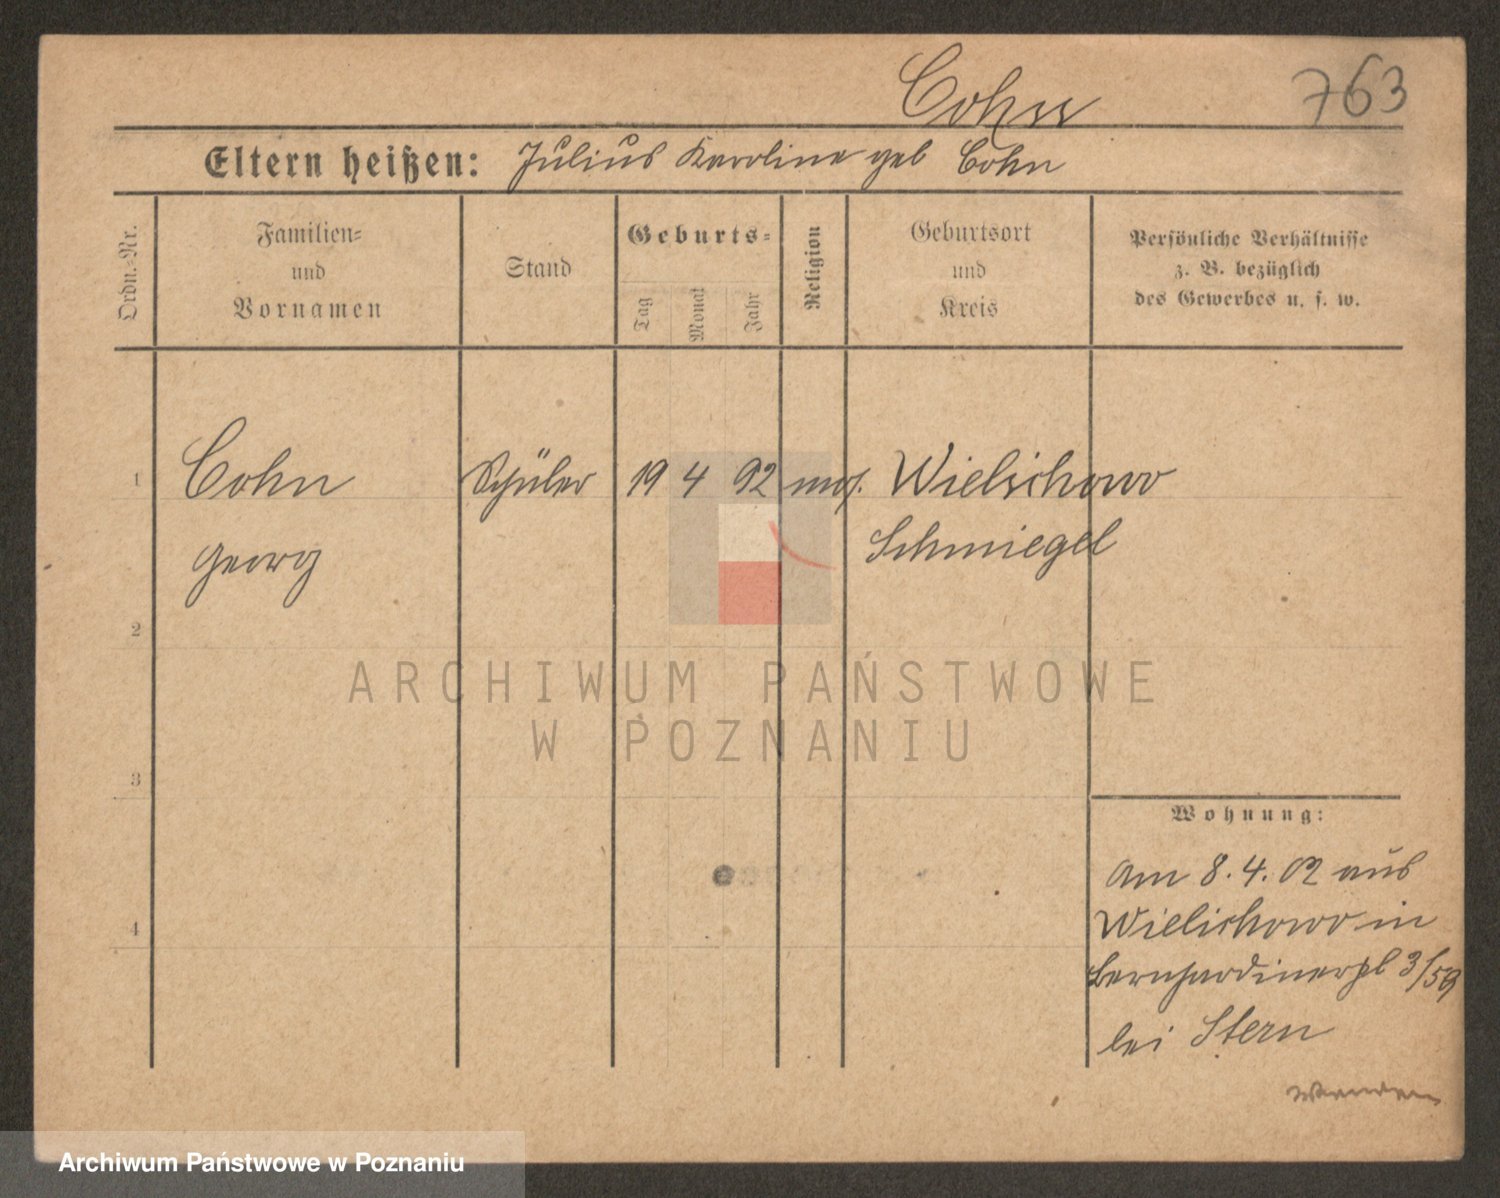 Cohn
763
Eltern heißen: Julius Karoline geb Cohn
Ordn.-Nr.
Familien-
und
Vornamen
Stand
Geburts-
Tag
Monat
Jahr
Religion
Geburtsort
und
Kreis
Persönliche Verhältnisse
z. B. bezüglich
des Gewerbes u. s. w.
1 Cohn Schüler 19 4 92 mos. Wielichowo
Georg Schmiegel
2
ARCHIWUM PAŃSTWOWE
W POZNANIU
3
Wohnung:
Am 8.4.02 aus
4
Wielichowo in
Bernhardinerpl 3/59
bei Stern
Wenden
Archiwum Państwowe w Poznaniu